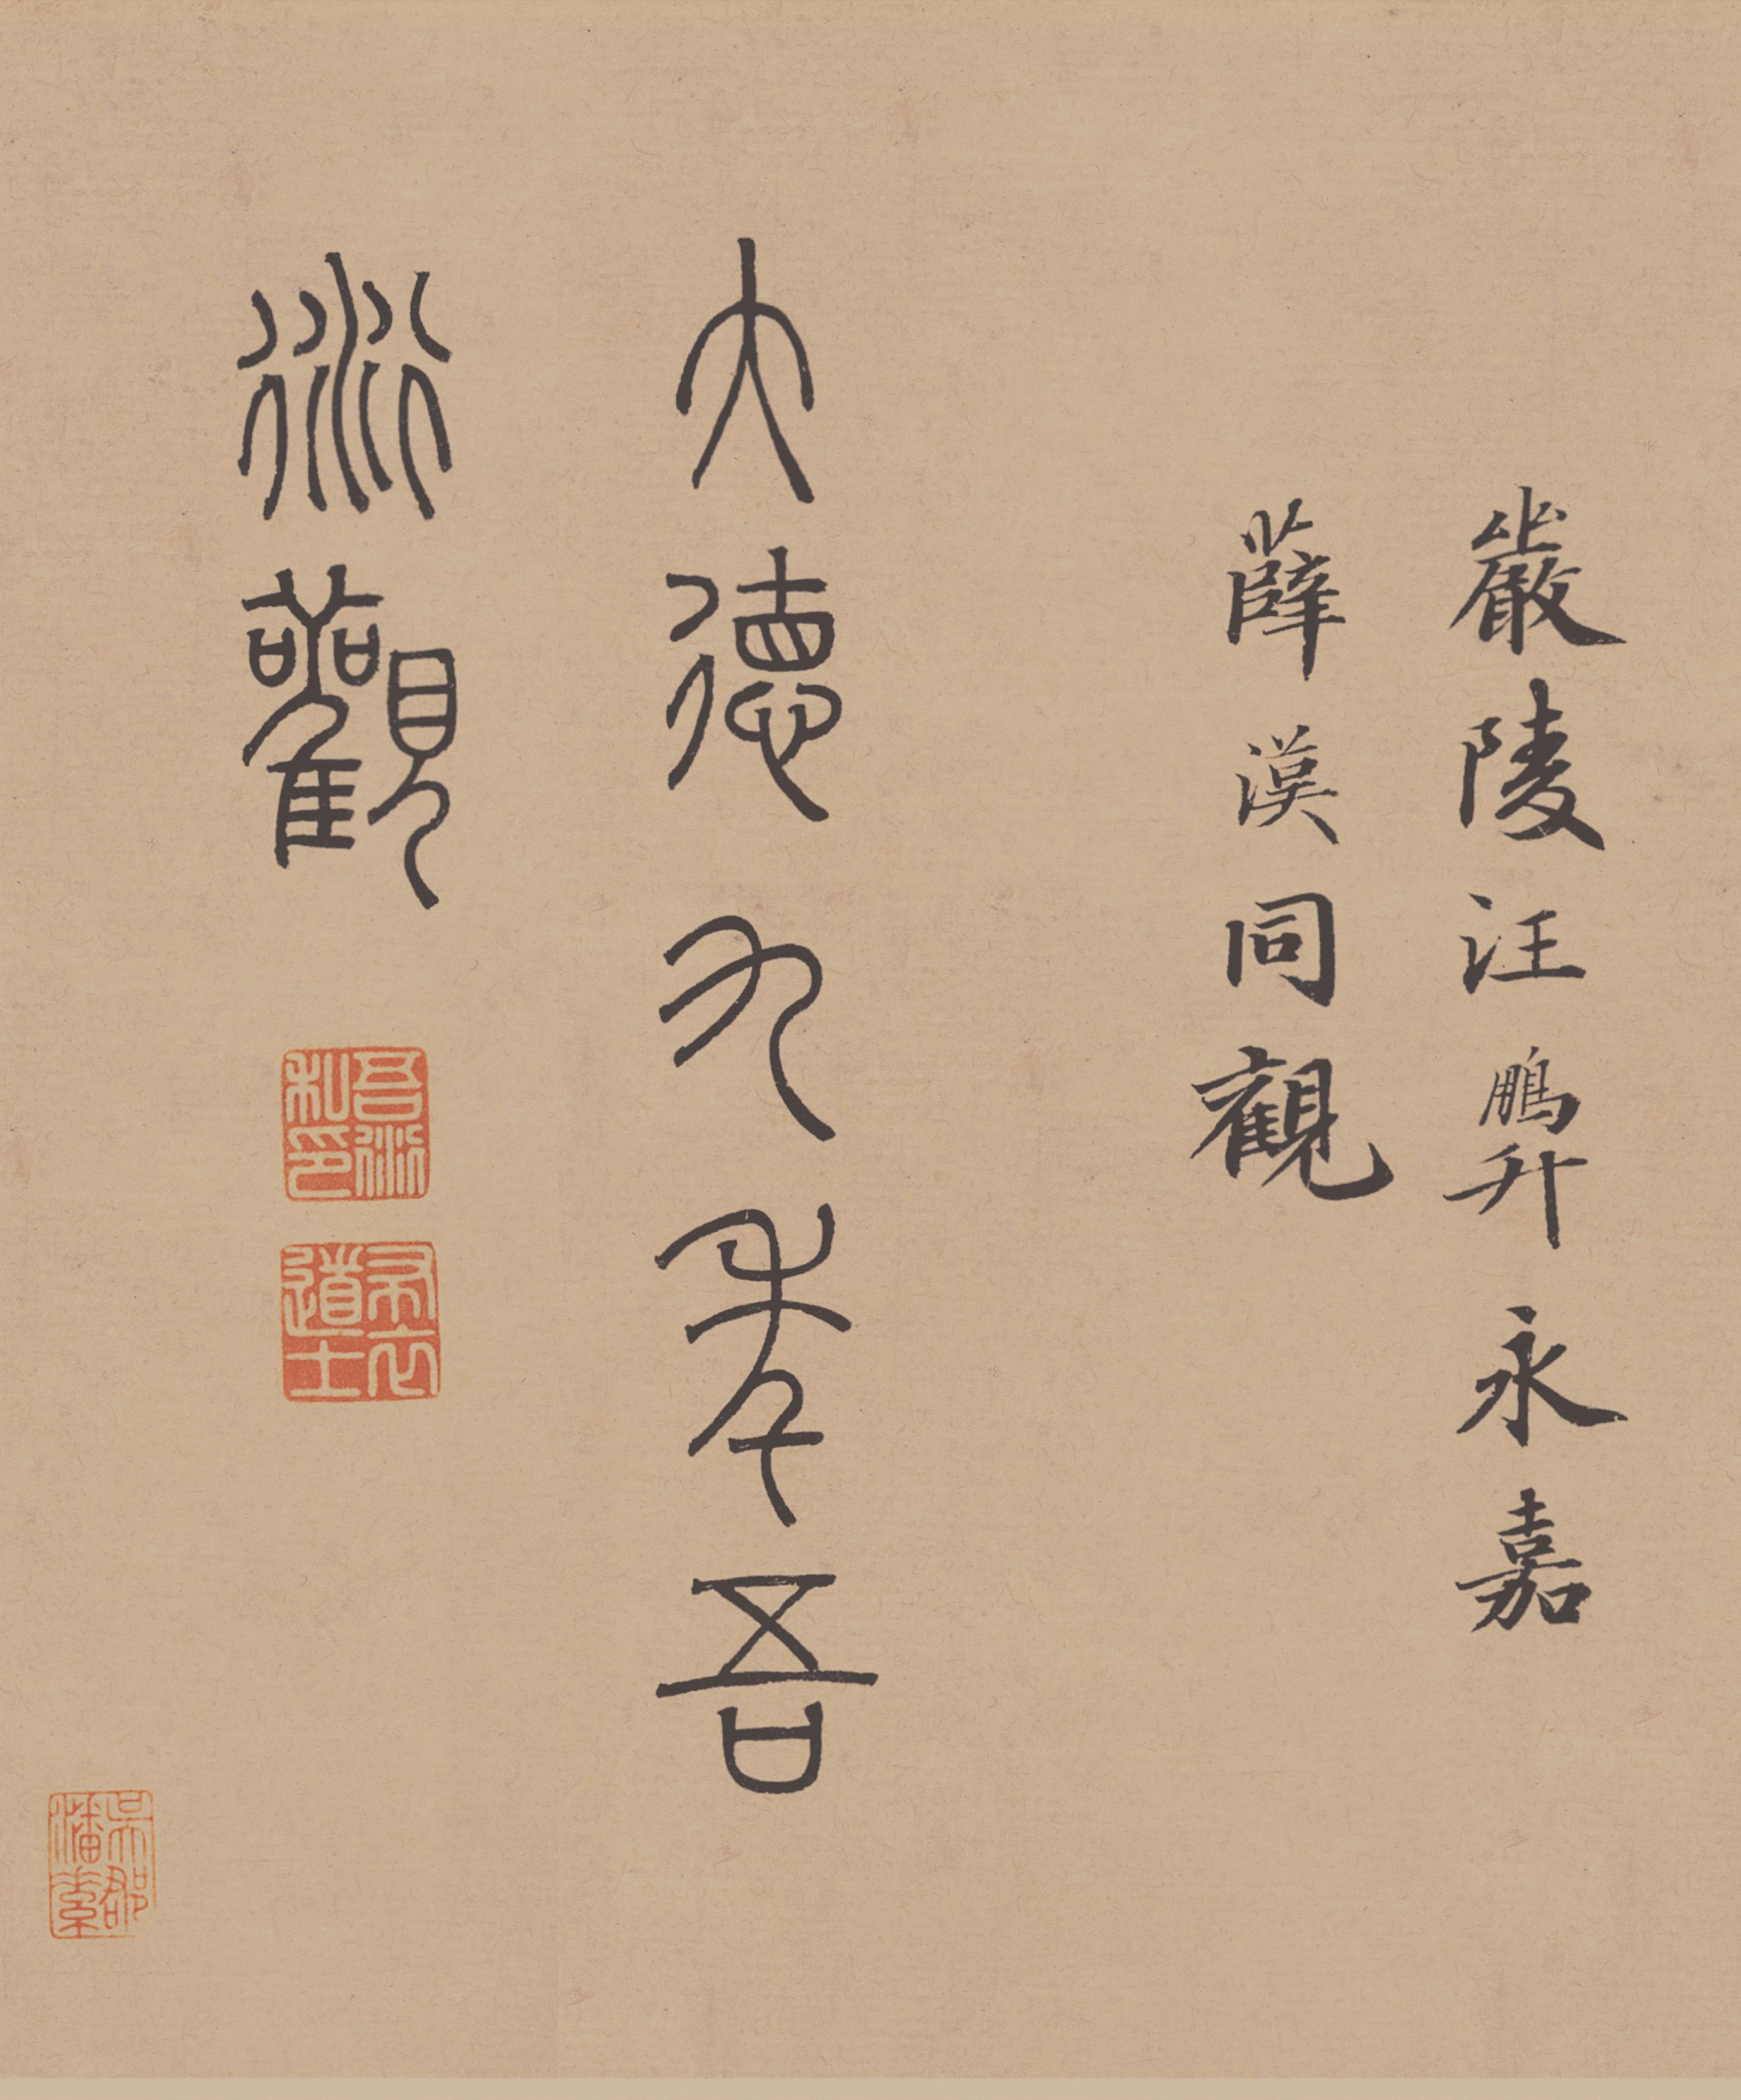 嚴陵汪鵬升永嘉
薛漢同觀
大德九年吾
衍觀
吾衍私印
布衣道士
吳郡潘素